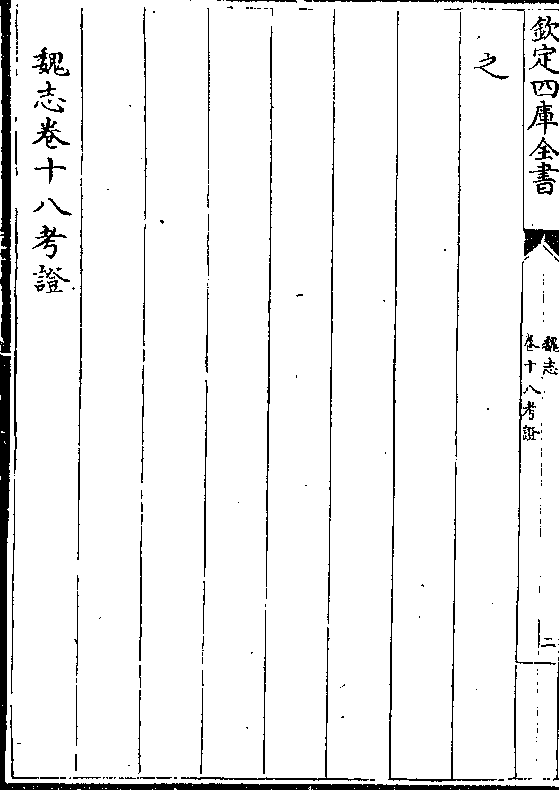 欽定四庫全書
魏志
卷十八考證
二
之
魏志卷十八考證